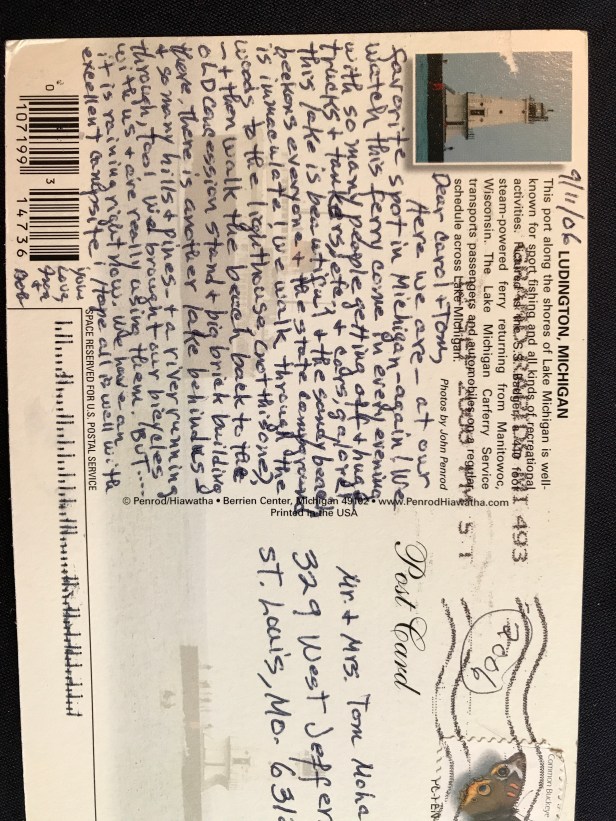 9/11/06
LUDINGTON, MICHIGAN
This port along the shores of Lake Michigan is well-
known for sport fishing and all kinds of recreational
activities. Pictured is the S.S. Badger, a 410 foot
steam-powered ferry returning from Manitowoc,
Wisconsin. The Lake Michigan Carferry Service
transports passengers and automobiles on a regular
schedule across Lake Michigan.
Photos by John Penrod
Dear Carol + Tom,
Here we are - at our
favorite spot in Michigan - again! We
watch this ferry come in every evening
with so many people getting off + huge
trucks + tankers, etc. + cars, galore!
this lake is beautiful + the sandy beach
beckons everyone + the state campground
is immaculate! We walk through the
woods to the lighthouse (not this one)
+ then walk the beach back to the
old concession stand + big brick building
there, there is another lake behind us
+ so many hills + pines - + a river running
through, too! We brought our bicycles
with us + are really using them. BUT...
it is raining right now. We have an
excellent campsite! Hope all is well with
you!
Love,
0 107199 3 14736
SPACE RESERVED FOR U.S. POSTAL SERVICE
© Penrod/Hiawatha • Berrien Center, Michigan 49102 • www.PenrodHiawatha.com
Printed in the USA
Post Card
493
2006
Common Buckeye
Mr. + Mrs. Tom Moha
329 West Jeffer
St. Louis, Mo. 631